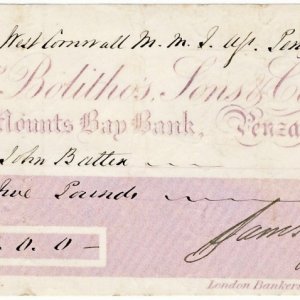 West Cornwall M. M. J. Ass. Pen
Bolitho, Sons & C
Mounts Bay Bank, Penza
John Batten
Five Pounds
. 0. 0 -
James
London Bankers